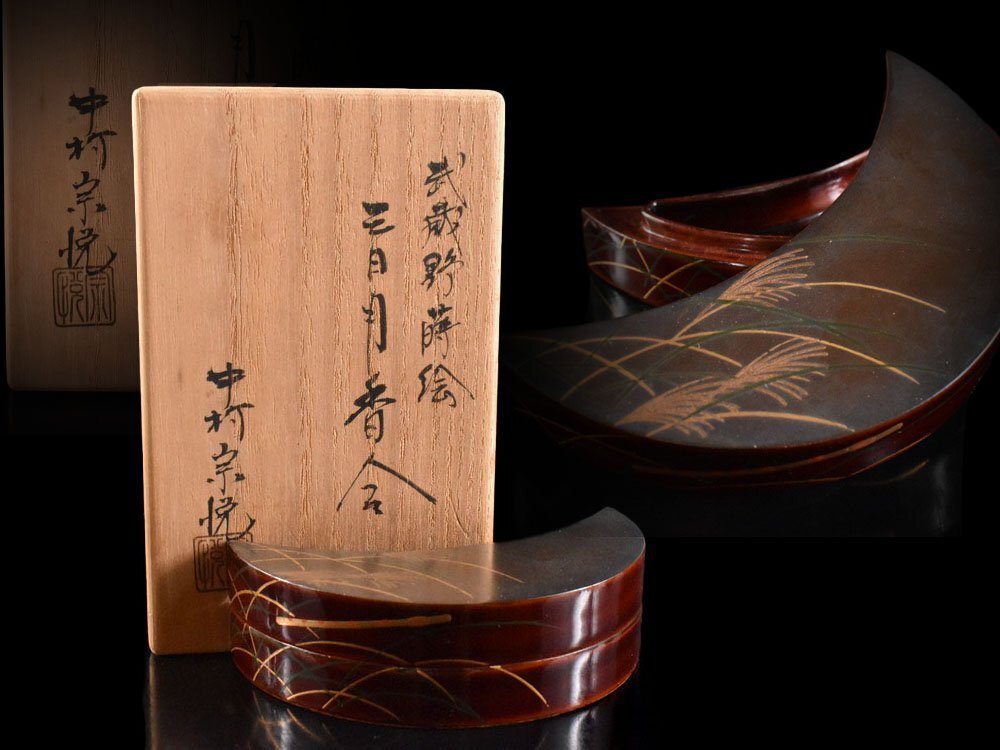 武蔵野蒔絵
三日月香合
中村宗悦
中村宗悦